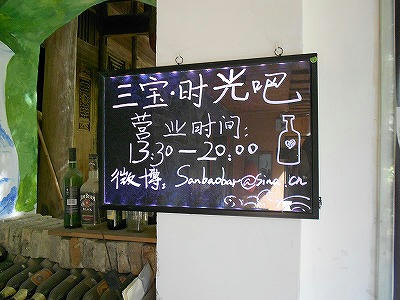 三宝·时光吧
营业时间:
13:30—20:00
微博: Sanbaobar@sina.cn